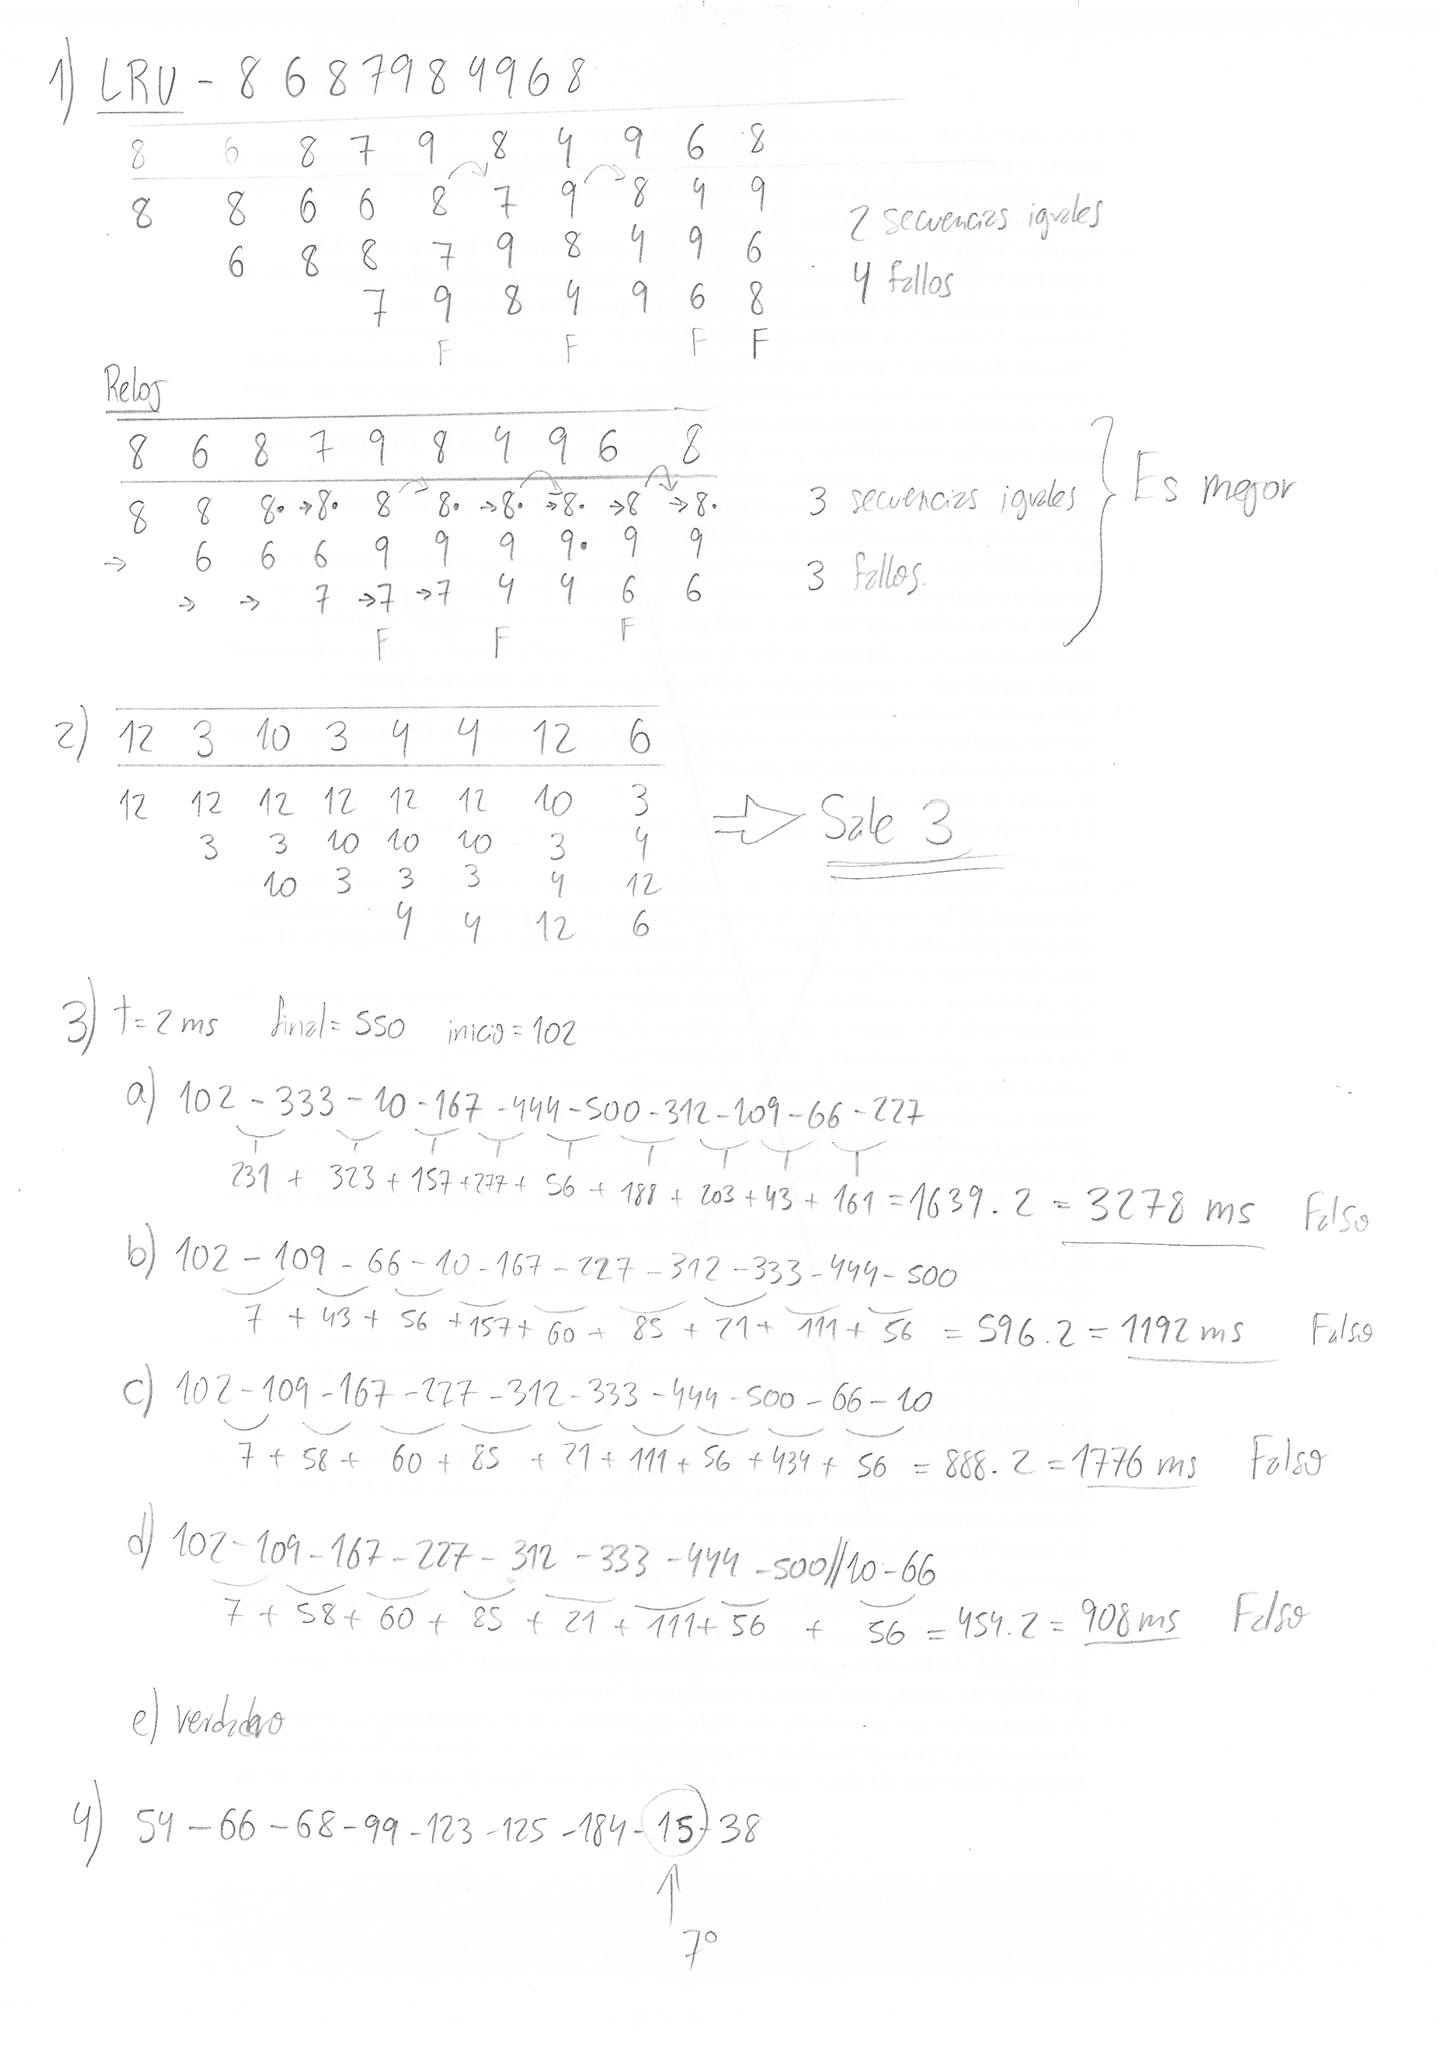 1) LRU - 8 6 8 7 9 8 4 9 6 8
8 6 8 7 9 8 4 9 6 8
8 8 6 6 8 7 9 8 4 9
2 secuencias iguales
6 8 8 7 9 8 4 9 6
4 fallos
7 9 8 4 9 6 8
F F F F
Reloj
8 6 8 7 9 8 4 9 6 8
8 8 8• →8• 8 8• →8• →8• →8 →8•
3 secuencias iguales
Es mejor
→ 6 6 6 9 9 9 9• 9 9
3 fallos.
→ → 7 →7 →7 4 4 6 6
F F F
2) 12 3 10 3 4 4 12 6
12 12 12 12 12 12 10 3
⇒ Sale 3
3 3 10 10 10 3 4
10 3 3 3 4 12
4 4 12 6
3) t=2 ms final= 550 inicio=102
a) 102 - 333 - 10 - 167 - 444 - 500 - 312 - 109 - 66 - 227
231 + 323 + 157 + 277 + 56 + 188 + 203 + 43 + 161 = 1639 . 2 = 3278 ms Falso
b) 102 - 109 - 66 - 10 - 167 - 227 - 312 - 333 - 444 - 500
7 + 43 + 56 + 157 + 60 + 85 + 21 + 111 + 56 = 596 . 2 = 1192 ms Falso
c) 102 - 109 - 167 - 227 - 312 - 333 - 444 - 500 - 66 - 10
7 + 58 + 60 + 85 + 21 + 111 + 56 + 434 + 56 = 888 . 2 = 1776 ms Falso
d) 102 - 109 - 167 - 227 - 312 - 333 - 444 - 500 // 10 - 66
7 + 58 + 60 + 85 + 21 + 111 + 56 + 56 = 454 . 2 = 908 ms Falso
e) verdadero
4) 54 - 66 - 68 - 99 - 123 - 125 - 184 - 15 - 38
↑
7º